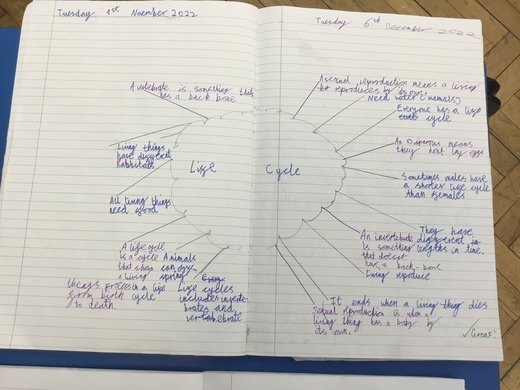 Tuesday 1st November 2022
A vertebrate is something that
has a back bone
Living things
have different
habbitats
All living things
need food
Life
A life cycle
is a cycle
that shows
a living
things process in a life
from birth cycle
to death.
Animals
can cry
spring
Life cycles
includes inverte
brates and
vertebrate
Tuesday 6th December 2022
Asexual reproduction means a living
to reproduces by its own.
Need water (mamals)
Everyone has a life
cycle
Cycle
An means
they not lay eggs
Sometimes males have
a shorter life cycle
than females
They have
different
lengths in time.
An invertebrate
is something
that doesnot
have a back-bone
Living reproduce
It ends when a living thing dies
Sexual reproduction is when a
living thing has a baby by
its own.
✓Great!